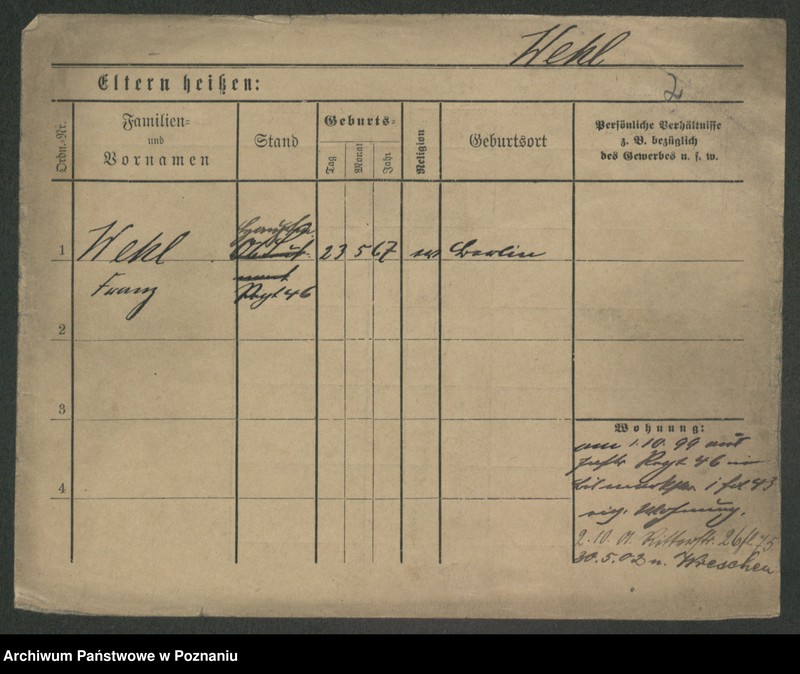 Wehl
2
Eltern heißen:
Ordn.-Nr.
Familien- und Vornamen
Stand
Geburts-
Tag
Monat
Jahr
Religion
Geburtsort
Persönliche Verhältnisse
z. B. bezüglich
des Gewerbes u. s. w.
1
Wehl
Franz
Regt 46
23 5 67
ev
Berlin
2
3
4
Wohnung:
am 1.10.99 aus
Regt 46 in
43
eig. Wohnung.
2.10.01. Ritterstr. 26
30.5.02 n. Wreschen
Archiwum Państwowe w Poznaniu